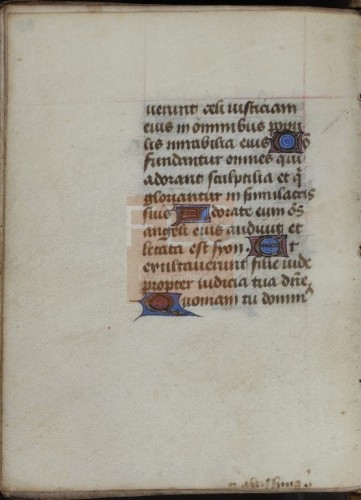 uerunt celi iusticiam
eius in omnibus popu
lis mirabilia eius Co
fundantur omnes qui
adorant sculptilia et q̄
gloriantur in simulacris
suis Adorate eum oēs
angeli eius audiuit et
letata est syon. Et
exultauerunt filie iude
propter iudicia tua dn̄e
Quoniam tu domin⁹